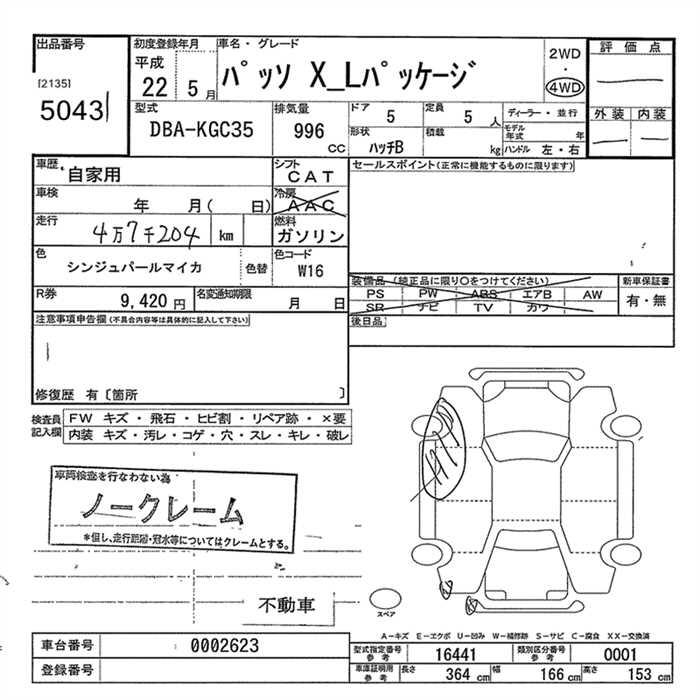 出品番号
[2135]
5043
初度登録年月
平成
22 5月
車名・グレード
パッソ X_Lパッケージ
2WD
・
4WD
評価点
外装 内装
型式
DBA-KGC35
排気量
996
CC
ドア
5
定員
5 人
形状
ハッチB
積載
kg
ディーラー・並行
モデル
年式 年
ハンドル 左・右
車歴
自家用
シフト
CAT
車検
年 月( 日)
冷房
AAC
走行
4万7千204 km
燃料
ガソリン
色
シンジュパールマイカ
色替
色コード
W16
R券
9,420 円
名変通知期限
月 日
セールスポイント(正常に機能するものに限ります)
装備品(純正品に限り○をつけてください)
PS PW ABS エアB AW
SR ナビ TV カワ
新車保証書
有・無
後日品
注意事項申告欄(不具合内容等は具体的に記入して下さい)
修復歴 有〔箇所 〕
検査員
記入欄
FW キズ・飛石・ヒビ割・リペア跡・×要
内装 キズ・汚レ・コゲ・穴・スレ・キレ・破レ
車両検査を行なわない為
ノークレーム
*但し、走行距離・冠水等についてはクレームとする。
不動車
スペア
A-キズ E-エクボ U-凹み W-補修跡 S-サビ C-腐食 XX-交換済
車台番号
0002623
登録番号
型式指定番号
参考
16441
類別区分番号
参考
0001
車庫証明用
参考
長さ
364 cm
幅
166 cm
高さ
153 cm